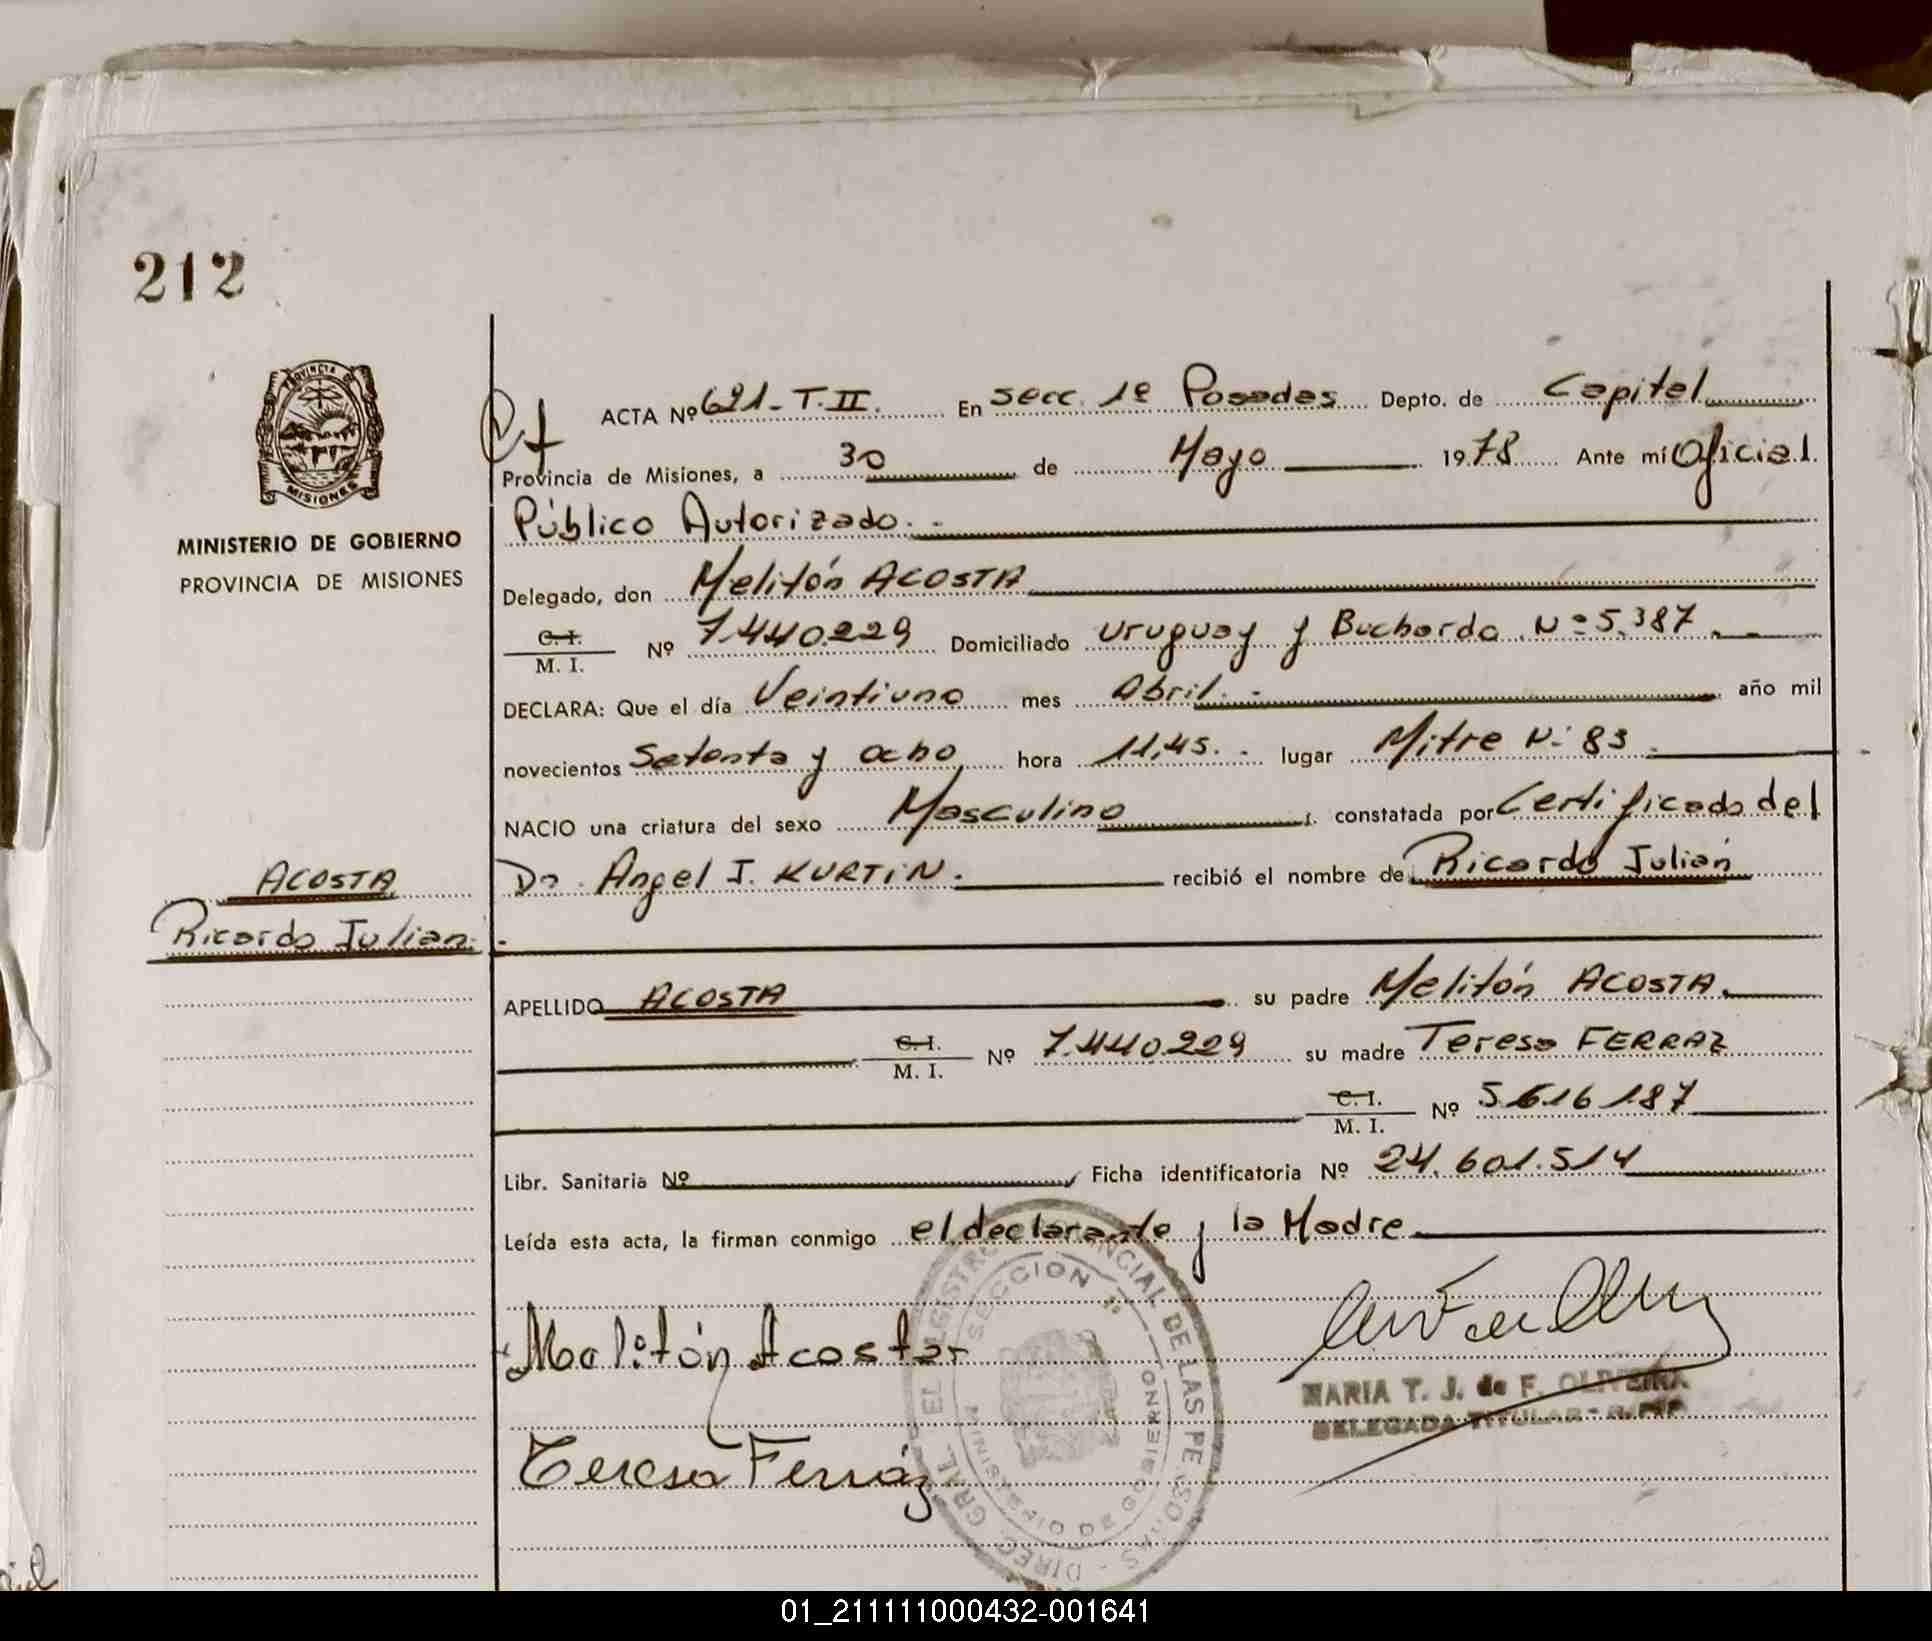 212
PROVINCIA DE
MISIONES
MINISTERIO DE GOBIERNO
PROVINCIA DE MISIONES
ACTA Nº 621-T.II. En secc. 1º Posadas Depto. de Capital
Provincia de Misiones, a 30 de Mayo 1978 Ante mí Oficial
Público Autorizado.-
Delegado, don Melitón ACOSTA
C.I.
M. I. Nº 7.440.229 Domiciliado Uruguay y Buchardo Nº 5.387.-
DECLARA: Que el día Veintiuno mes Abril.- año mil
novecientos Setenta y ocho hora 11,45.- lugar Mitre Nº 83
NACIO una criatura del sexo Masculino constatada por Certificado del
Dr. Angel J. KURTIN. recibió el nombre de Ricardo Julián
ACOSTA
Ricardo Julian.
APELLIDO ACOSTA su padre Melitón ACOSTA.
C.I.
M. I. Nº 7.440.229 su madre Teresa FERRAZ
C.I.
M. I. Nº 5.616.187
Libr. Sanitaria Nº Ficha identificatoria Nº 24.601.514
Leída esta acta, la firman conmigo el declarante y la Madre
Melitón Acosta
Teresa Ferráz
MARIA T. J. de F. OLIVEIRA
DELEGADA TITULAR
SECCION 1º
01_211111000432-001641